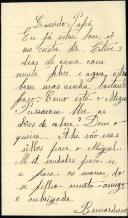 Querido Papá
Eu já estou bom só
me custa
dias de cama com
muita febre e agua,
bem mas ainda bastante
fraco. Como está o Miguel
Passaram as
dores de cabeça? Deus o
queira. Ahi vão uns
sellos para o Miguel.
Mil saudades para
e para os manos, do
seu filho muito amigo
e obrigado
Bernardino